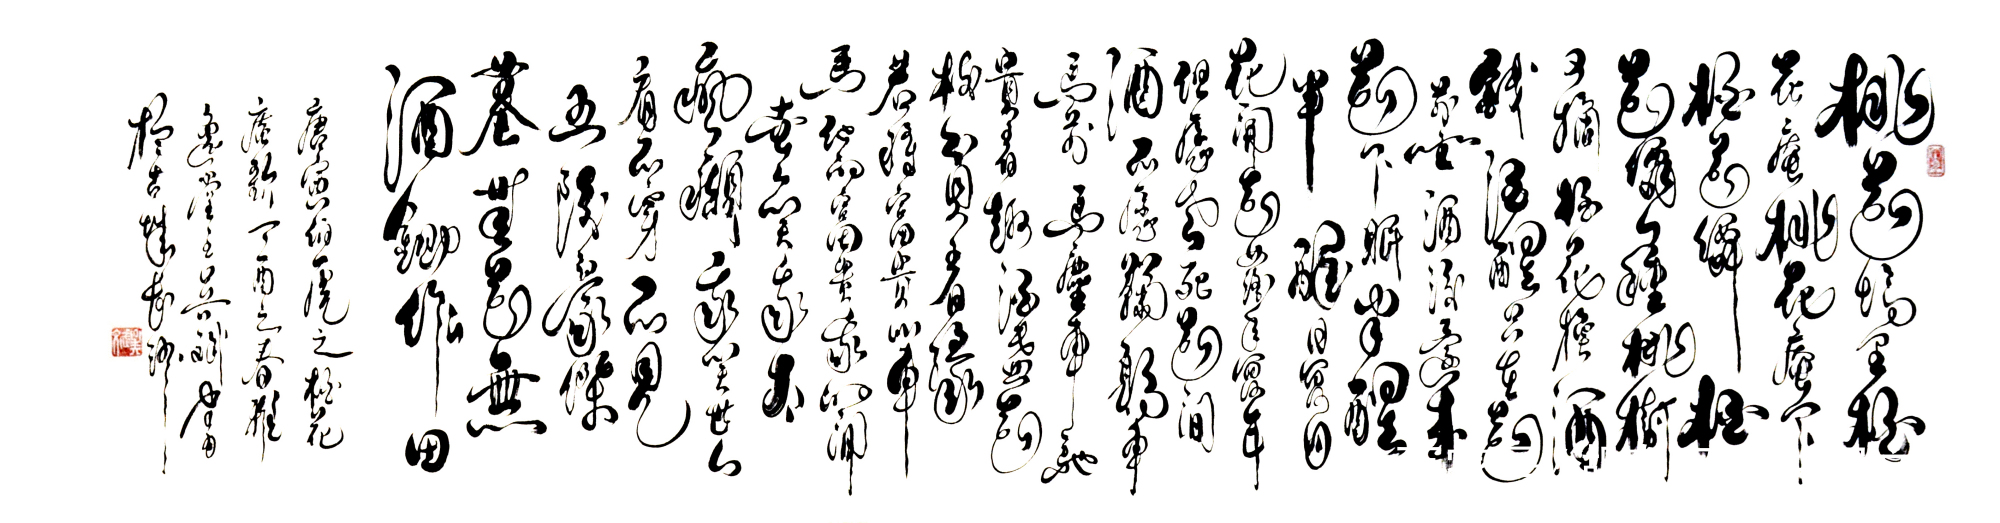 桃花塢里桃
花庵桃花庵下
桃花仙桃
花仙人種桃樹
又摘桃花換酒
錢酒醒只在花
前坐酒後還來
花下眠半醒
半醉日復日
花開花落年復年
但願老死花間
酒不願鞠躬車
馬前馬塵車馳
貴者趣酒盞花
枝貧者緣
若將富貴比車
馬他得富貴我得閒
世人笑我太
瘋癲我笑世人
看不穿不見
五陵豪傑
墓無花無
酒鋤作田
唐寅伯虎之桃花
庵歌丁酉之春雅
逸堂主吳書
於古城長沙